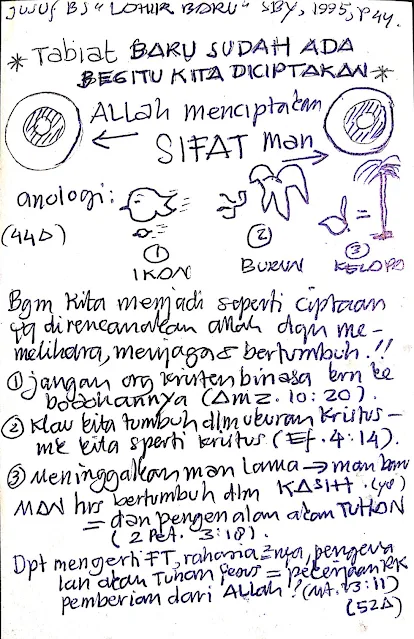 JUSUF BS "LAHIR BARU" SBY, 1995, P 44.
* Tabiat BARU SUDAH ADA
BEGITU KITA DICIPTAKAN *
Allah menciptakan
← SIFAT Man →
anologi:
(44Δ)
① ② ③
IKAN BURUN KELOPO
Bgm Kita menjadi seperti ciptaan
yg direncanakan allah dgn me-
melihara, menjaga & bertumbuh.!!
① jangan org kristen binasa krn ke
bodohannya (Δmz. 10:20).
② Klau kita tumbuh dlm ukuran Kristus -
mk kita sperti kristus (Ef. 4:14).
③ Meninggalkan man lama → man baru
MAN hrs bertumbuh dlm KASIH (40)
= dan pengenalan akan TUHAN
(2 Pet. 3:18).
Dpt mengerti FT, rahasia2nya, pengena
lan akan Tuhan Jesus = pekerjaan RK
pemberian dari Allah! (MA. 13:11)
(52Δ)